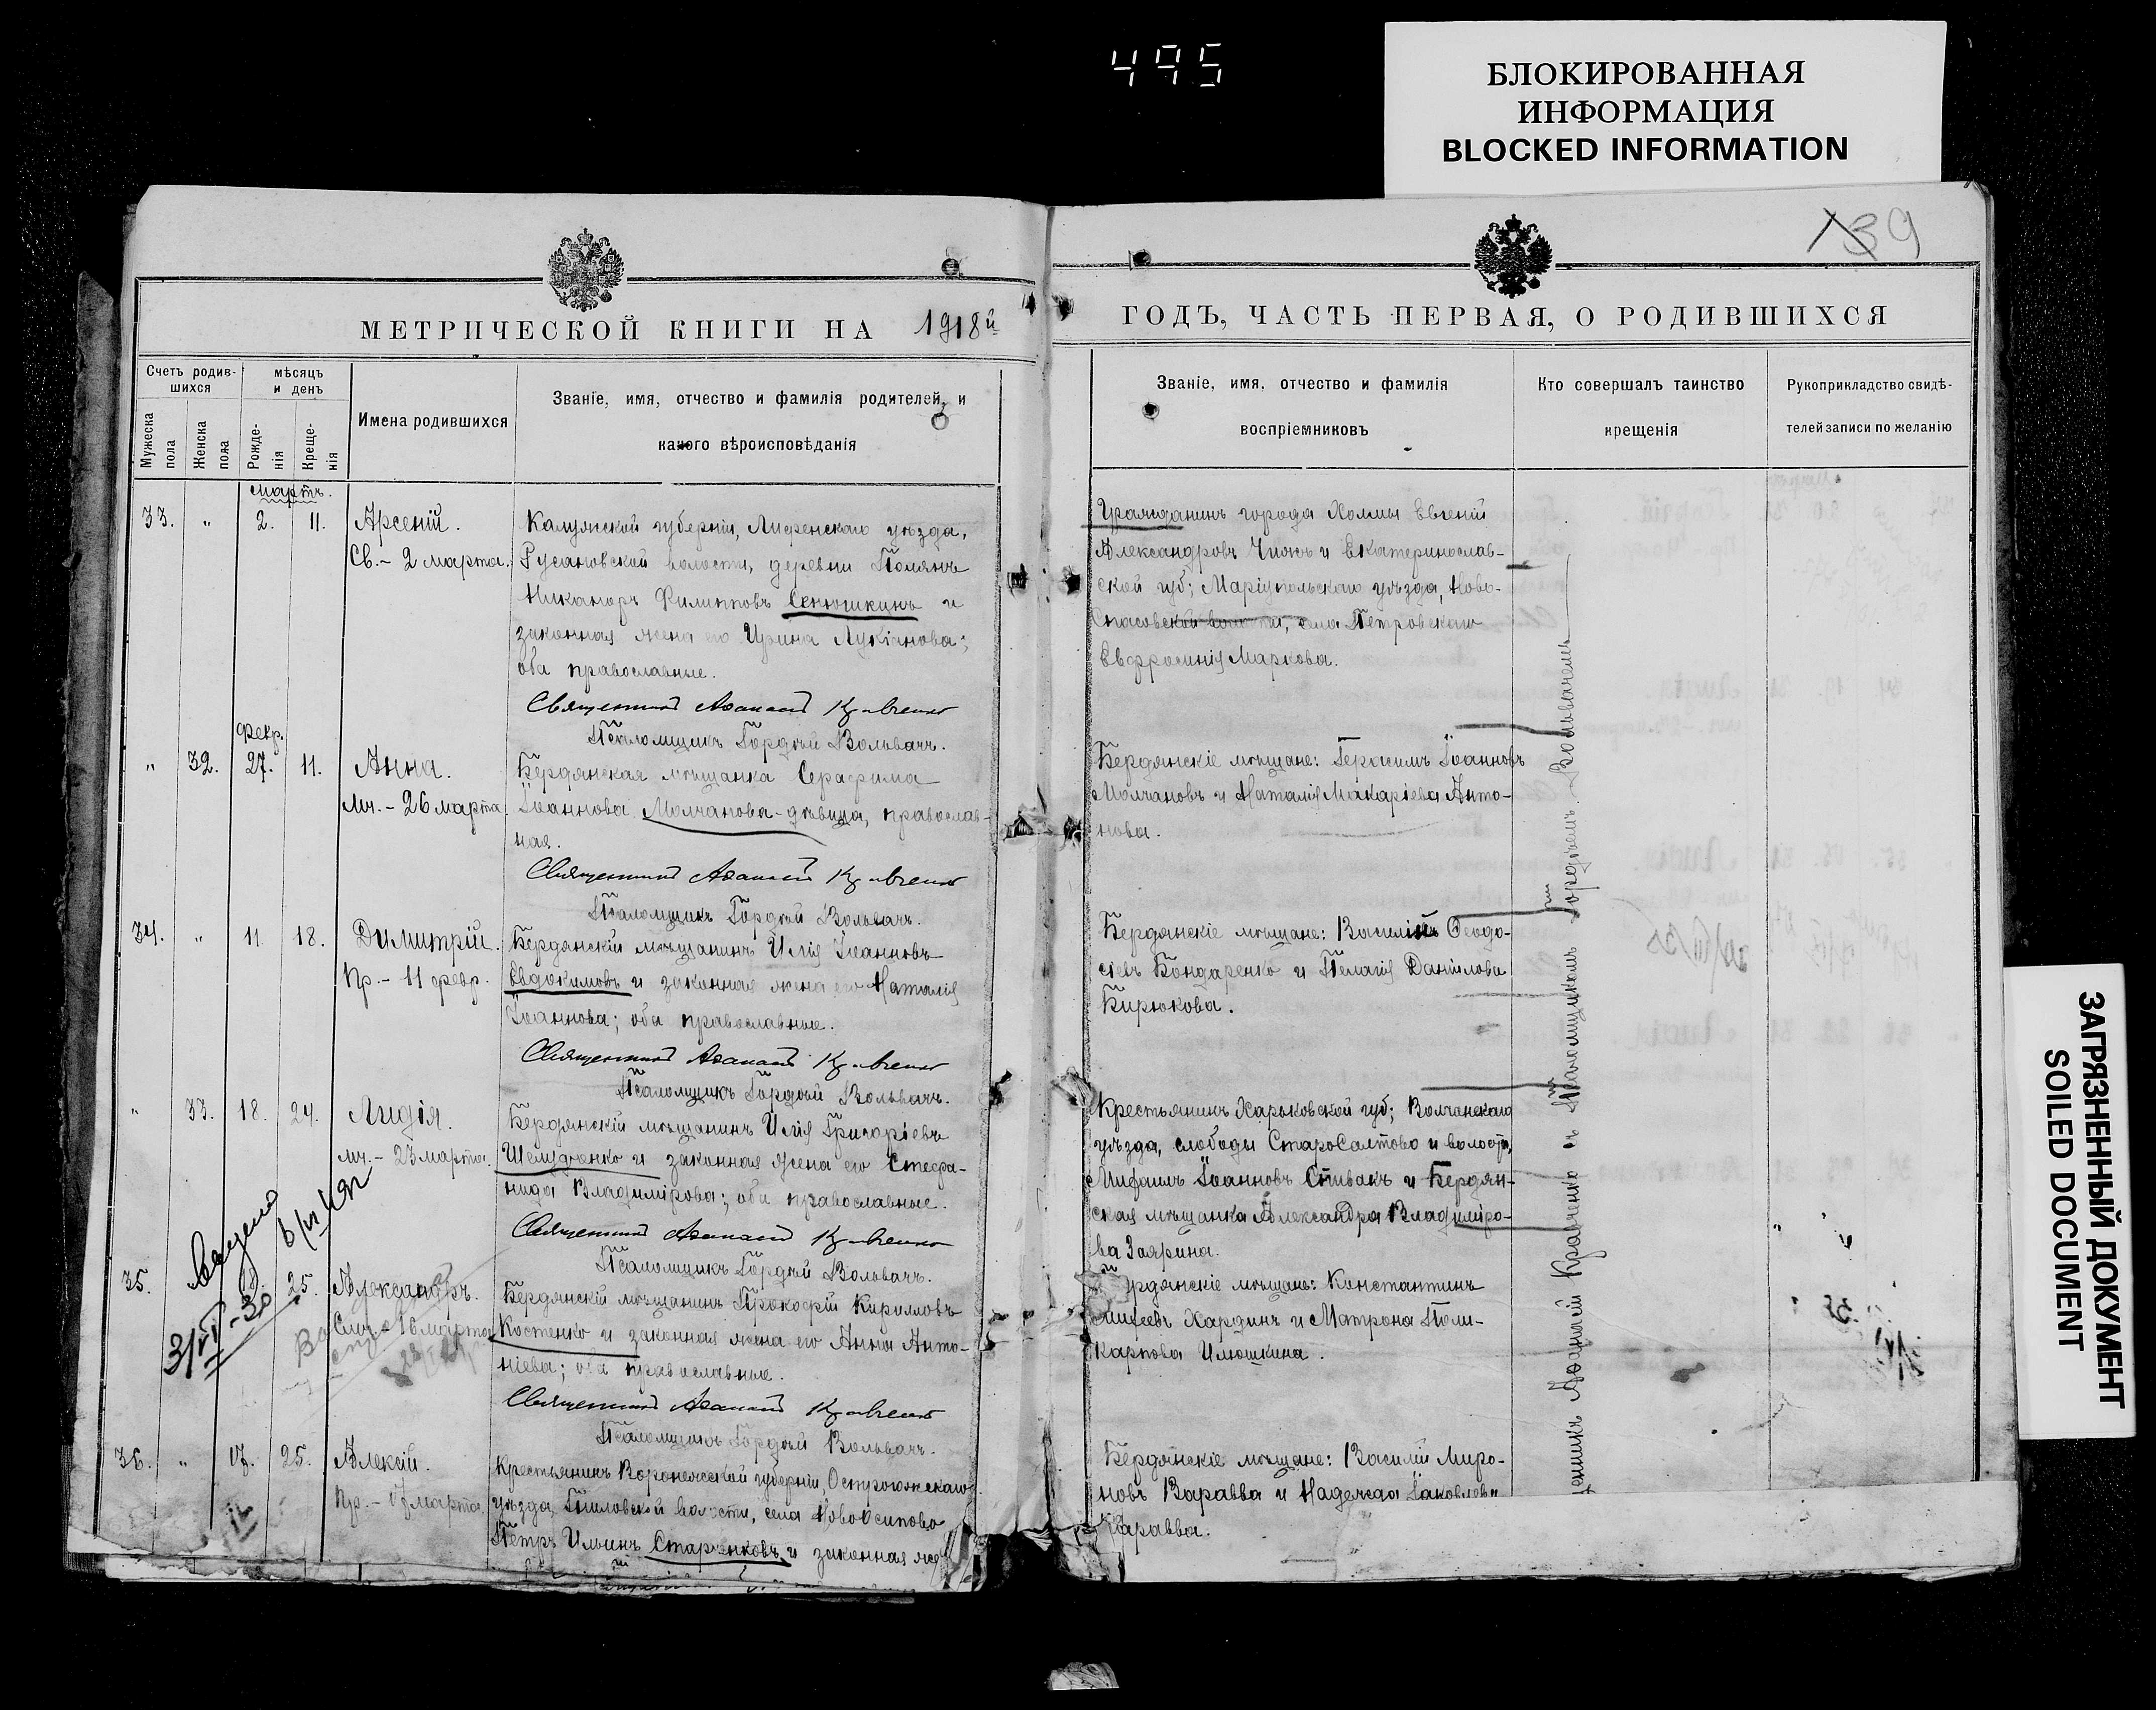 495
БЛОКИРОВАННАЯ
ИНФОРМАЦИЯ
BLOCKED INFORMATION
139
МЕТРИЧЕСКОЙ КНИГИ НА 1918й
ГОДЪ, ЧАСТЬ ПЕРВАЯ, О РОДИВШИХСЯ
Счетъ родив-
шихся
Мужеска
пола
Женска
пола
мѣсяцъ
и день
Рожде-
нія
Креще-
нія
Имена родившихся
Званіе, имя, отчество и фамилія родителей, и
какого вѣроисповѣданія
Званіе, имя, отчество и фамилія
воспріемниковъ
Кто совершалъ таинство
крещенія
Рукоприкладство свидѣ-
телей записи по желанію
Мартъ.
33. " 2. 11. Арсеній.
Св.- 2 марта.
Калужской губерніи, уѣзда,
Русановской волости, деревни Полянъ
Никаноръ Филипповъ Сенюшкинъ и
законная жена его Ирина Лукіанова;
оба православные.
Священникъ Аѳанасій Кравченко
Псаломщикъ Гордѣй Вольвачъ.
Гражданинъ города Холмы Евгеній
Александровъ Чижъ и Екатеринослав-
ской губ; Маріупольскаго уѣзда, Ново-
Спасовской волости, села Петровскаго
Евфросинія Маркова.
Февр.
" 32. 27. 11. Анна.
- 26 марта.
Бердянская мѣщанка Серафима
Іоаннова Молчанова-дѣвица, православ-
ная.
Священникъ Аѳанасій Кравченко
Псаломщикъ Гордѣй Вольвачъ.
Бердянскіе мѣщане: Герасимъ Іоанновъ
Молчановъ и Наталія Макаріева Анто-
нова.
34. " 11. 18. Димитрій.
Пр.- 11 февр.
Бердянскій мѣщанинъ Илія Іоанновъ
Евдокимовъ и законная жена его Наталія
Іоаннова; оба православные.
Священникъ Аѳанасій Кравченко
Псаломщикъ Гордѣй Вольвачъ.
Бердянскіе мѣщане: Василій Ѳеодо-
сіевъ Бондаренко и Пелагія Даніилова
Бирюкова.
" 33. 18. 24. Лидія.
- 23 марта.
Бердянскій мѣщанинъ Илія Григоріевъ
и законная жена его Стефа-
нида Владимірова; оба православные.
Священникъ Аѳанасій Кравченко
Псаломщикъ Гордѣй Вольвачъ.
Крестьянинъ Харьковской губ; Волчанскаго
уѣзда, слободы СтароСалтово и волости,
Іоанновъ Спивакъ и Бердян-
ская мѣщанка Александра Владиміро-
ва Заярина.
35. 25. Александръ.
марта
31/V-30
Бердянскій мѣщанинъ Прокофій Кирилловъ
Костенко и законная жена его Анна Анто-
ніева; оба православные.
Священникъ Аѳанасій Кравченко
Псаломщикъ Гордѣй Вольвачъ.
Бердянскіе мѣщане: Константинъ
Хардинъ и Матрона Поли-
карпова Илюшкина.
36. " 17. 25. Алексій.
Пр.- 17 марта.
Крестьянинъ Воронежской губерніи, Острогожскаго
уѣзда, волости, села НовоОсипово
Петръ Ильинъ Старченковъ и законная же
Бердянскіе мѣщане: Василій Миро-
новъ Варавва и Надежда Іаковлева
Варавва.
Аѳанасій Кравченко съ Псаломщикомъ Гордѣемъ Вольвачемъ
ЗАГРЯЗНЕННЫЙ ДОКУМЕНТ
SOILED DOCUMENT